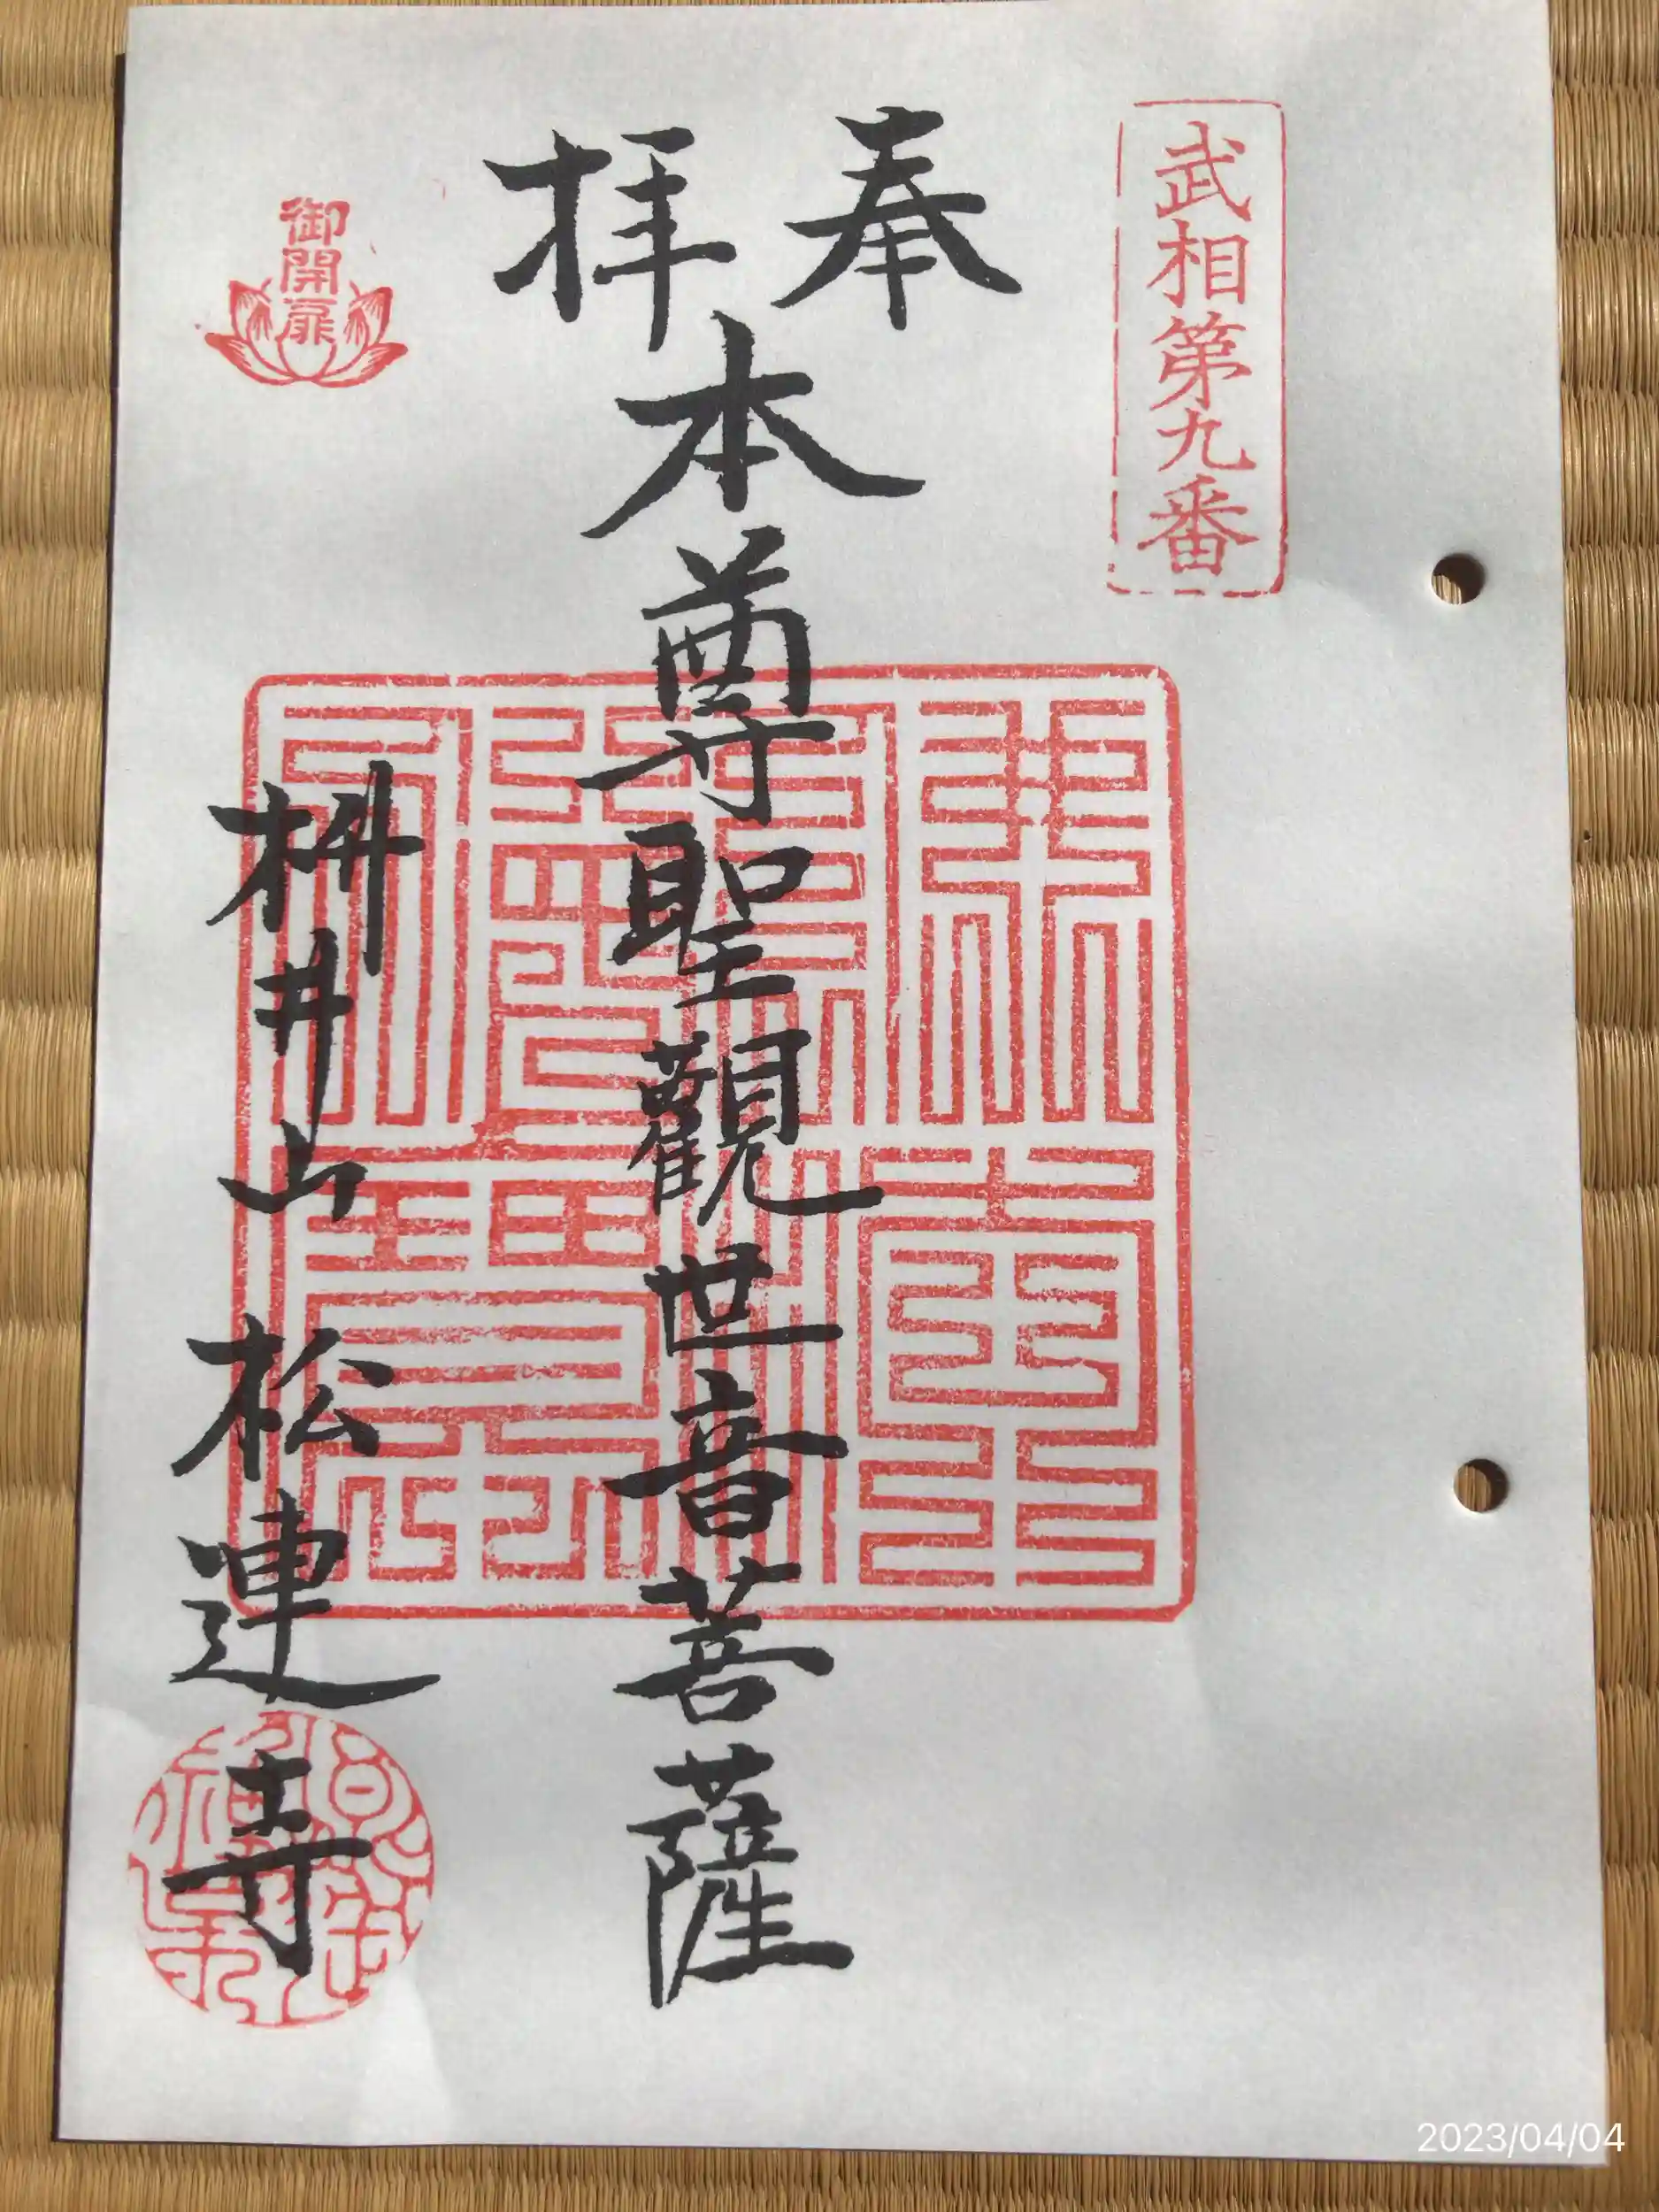 武相第九番
奉拝
本尊聖觀世音菩薩
御開扉
桝井山 松連寺
2023/04/04